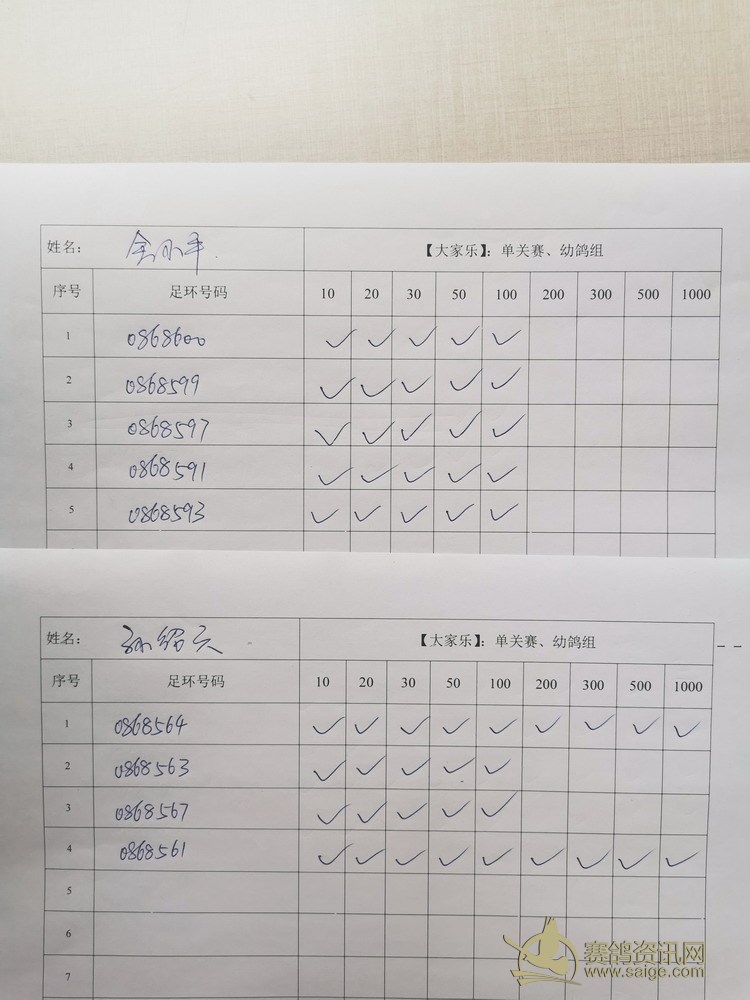 姓名： 金小平 【大家乐】：单关赛、幼鸽组
序号 足环号码 10 20 30 50 100 200 300 500 1000
1 0868600 ✓ ✓ ✓ ✓ ✓
2 0868599 ✓ ✓ ✓ ✓ ✓
3 0868597 ✓ ✓ ✓ ✓ ✓
4 0868591 ✓ ✓ ✓ ✓ ✓
5 0868593 ✓ ✓ ✓ ✓ ✓
姓名： 【大家乐】：单关赛、幼鸽组
序号 足环号码 10 20 30 50 100 200 300 500 1000
1 0868564 ✓ ✓ ✓ ✓ ✓ ✓ ✓ ✓ ✓
2 0868563 ✓ ✓ ✓ ✓ ✓
3 0868567 ✓ ✓ ✓ ✓ ✓
4 0868561 ✓ ✓ ✓ ✓ ✓ ✓ ✓ ✓ ✓
5
6
7
赛鸽资讯网
www.saige.com